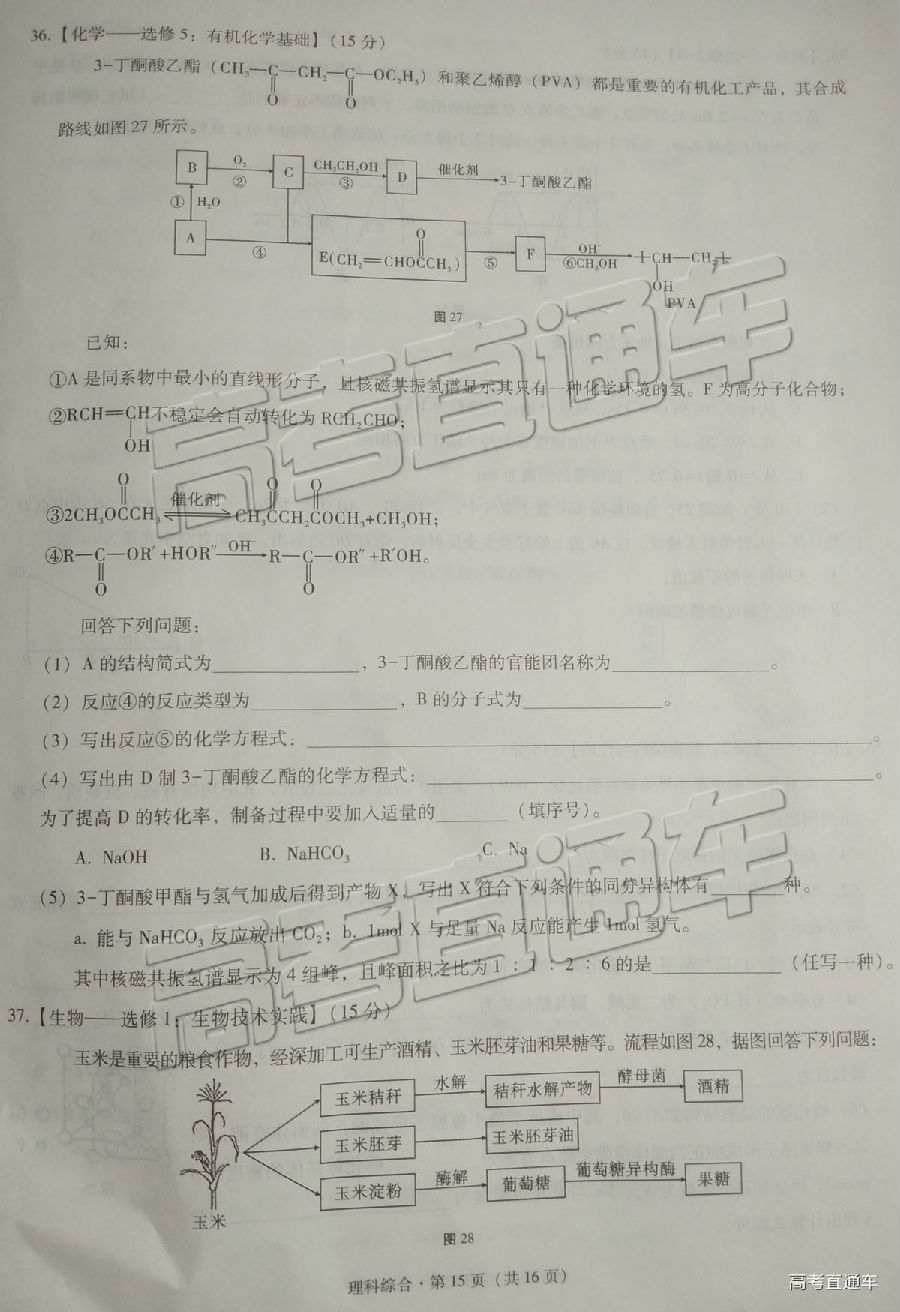 36.【化学——选修5：有机化学基础】（15分）
3-丁酮酸乙酯（CH₃—C—CH₂—C—OC₂H₅）和聚乙烯醇（PVA）都是重要的有机化工产品，其合成
O O
路线如图27所示。
B O₂ ② C CH₃CH₂OH ③ D 催化剂 3-丁酮酸乙酯
① H₂O
A ④ E(CH₂=CHOCCH₃) ⑤ F OH⁻ ⑥CH₃OH CH—CH₂
O
OH
PVA
图27
已知：
①A是同系物中最小的直线形分子，且核磁共振氢谱显示其只有一种化学环境的氢。F为高分子化合物；
②RCH=CH不稳定会自动转化为RCH₂CHO；
OH
O O O
③2CH₃OCCH₃ 催化剂 CH₃CCH₂COCH₃+CH₃OH；
④R—C—OR′+HOR″ OH⁻ R—C—OR″+R′OH。
O O
回答下列问题：
（1）A的结构简式为，3-丁酮酸乙酯的官能团名称为。
（2）反应④的反应类型为，B的分子式为。
（3）写出反应⑤的化学方程式：。
（4）写出由D制3-丁酮酸乙酯的化学方程式：。
为了提高D的转化率，制备过程中要加入适量的（填序号）。
A. NaOH B. NaHCO₃ C. Na
（5）3-丁酮酸甲酯与氢气加成后得到产物X，写出X符合下列条件的同分异构体有种。
a. 能与NaHCO₃反应放出CO₂；b. 1mol X与足量Na反应能产生1mol氢气。
其中核磁共振氢谱显示为4组峰，且峰面积之比为1：1：2：6的是（任写一种）。
37.【生物——选修1：生物技术实践】（15分）
玉米是重要的粮食作物，经深加工可生产酒精、玉米胚芽油和果糖等。流程如图28，据图回答下列问题：
玉米秸秆 水解 秸秆水解产物 酵母菌 酒精
玉米胚芽 玉米胚芽油
玉米淀粉 酶解 葡萄糖 葡萄糖异构酶 果糖
玉米
图28
理科综合·第15页（共16页）
高考直通车
高考直通车
高考直通车